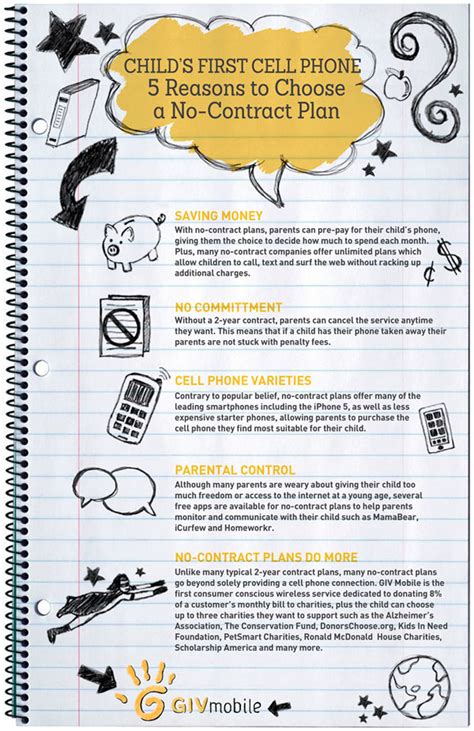 CHILD'S FIRST CELL PHONE
5 Reasons to Choose
a No-Contract Plan
SAVING MONEY
With no-contract plans, parents can pre-pay for their child's phone,
giving them the choice to decide how much to spend each month.
Plus, many no-contract companies offer unlimited plans which
allow children to call, text and surf the web without racking up
additional charges.
NO COMMITTMENT
Without a 2-year contract, parents can cancel the service anytime
they want. This means that if a child has their phone taken away their
parents are not stuck with penalty fees.
CELL PHONE VARIETIES
Contrary to popular belief, no-contract plans offer many of the
leading smartphones including the iPhone 5, as well as less
expensive starter phones, allowing parents to purchase the
cell phone they find most suitable for their child.
PARENTAL CONTROL
Although many parents are weary about giving their child too
much freedom or access to the internet at a young age, several
free apps are available for no-contract plans to help parents
monitor and communicate with their child such as MamaBear,
iCurfew and Homeworkr.
NO-CONTRACT PLANS DO MORE
Unlike many typical 2-year contract plans, many no-contract plans
go beyond solely providing a cell phone connection. GIV Mobile is the
first consumer conscious wireless service dedicated to donating 8%
of a customer's monthly bill to charities, plus the child can choose
up to three charities they want to support such as the Alzheimer's
Association, The Conservation Fund, DonorsChoose.org, Kids In Need
Foundation, PetSmart Charities, Ronald McDonald House Charities,
Scholarship America and many more.
GIVmobile